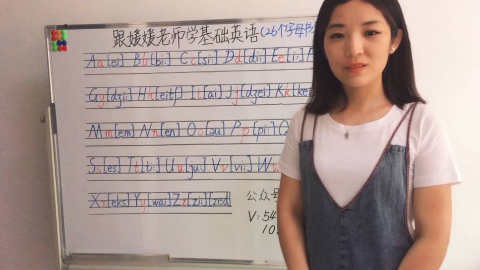 跟媛媛老师学基础英语(26个字母书
Aa[ei] Bb[bi:] Cc[si:] Dd[di:] Ee[i:]
Gg[dʒi:] Hh[eitʃ] Ii[ai] Jj[dʒei] Kk[kei
Mm[em] Nn[en] Oo[əu] Pp[pi:] Q
Ss[es] Tt[ti:] Uu[ju:] Vv[vi:] Ww
Xx[eks] Yy[wai] Zz[zi:][zed]
公众号
V: 54
10